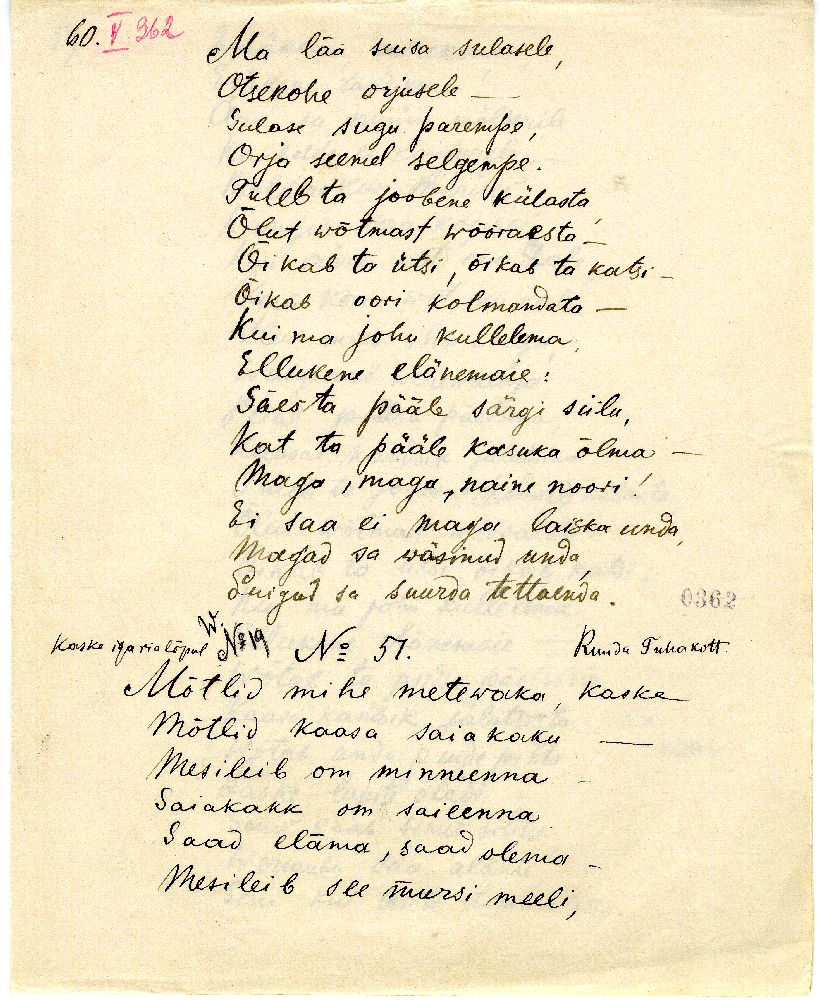 60. V 362
Ma lää suisa sulasele,
Otsekohe orjusele —
Sulase sugu parempe,
Orja seemel selgempe.
Tuleb ta joobene külasta,
Õlut wõtmast wõõraesta —
Õikab ta ütsi, õikab ta katsi —
Õikab oori kolmandata —
Kui ma johu kullelema,
Ellukene elänemaie:
Säesta pääle särgi siilu,
Kat ta pääle kasuka õlma —
Maga, maga, naine noori!
Ei saa ei maga laiska unda,
Magad sa wäsinud unda,
Puigud sa suurda tettaenda.
0362
Kaske iga ria lõpul W. № 19 № 51. Ruudu Tuhakott
Mõtlid mihe metewaka, kaske —
Mõtlid kaasa saiakaku —
Mesileib om minneenna —
Saiakakk om saileenna
Saad eläma, saad olema —
Mesileib see mursi meeli,